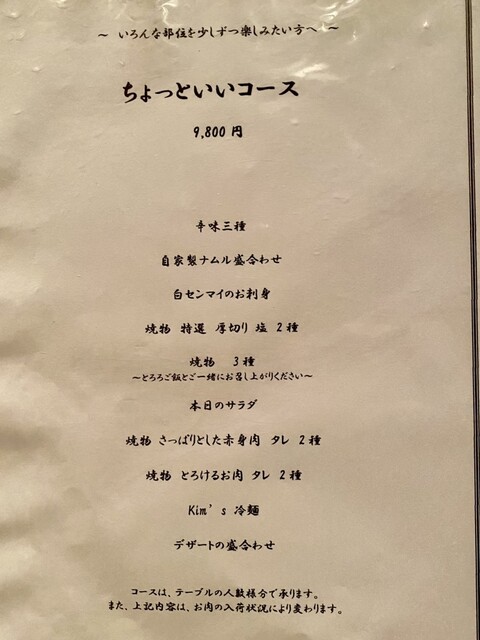 ～ いろんな部位を少しずつ楽しみたい方へ ～
ちょっといいコース
9,800 円
辛味三種
自家製ナムル盛合わせ
白センマイのお刺身
焼物 特選 厚切り 塩 2種
焼物 3種
～とろろご飯とご一緒にお召し上がりください～
本日のサラダ
焼物 さっぱりとした赤身肉 タレ 2種
焼物 とろけるお肉 タレ 2種
Kim's 冷麺
デザートの盛合わせ
コースは、テーブルの人数様分で承ります。
また、上記内容は、お肉の入荷状況により変わります。